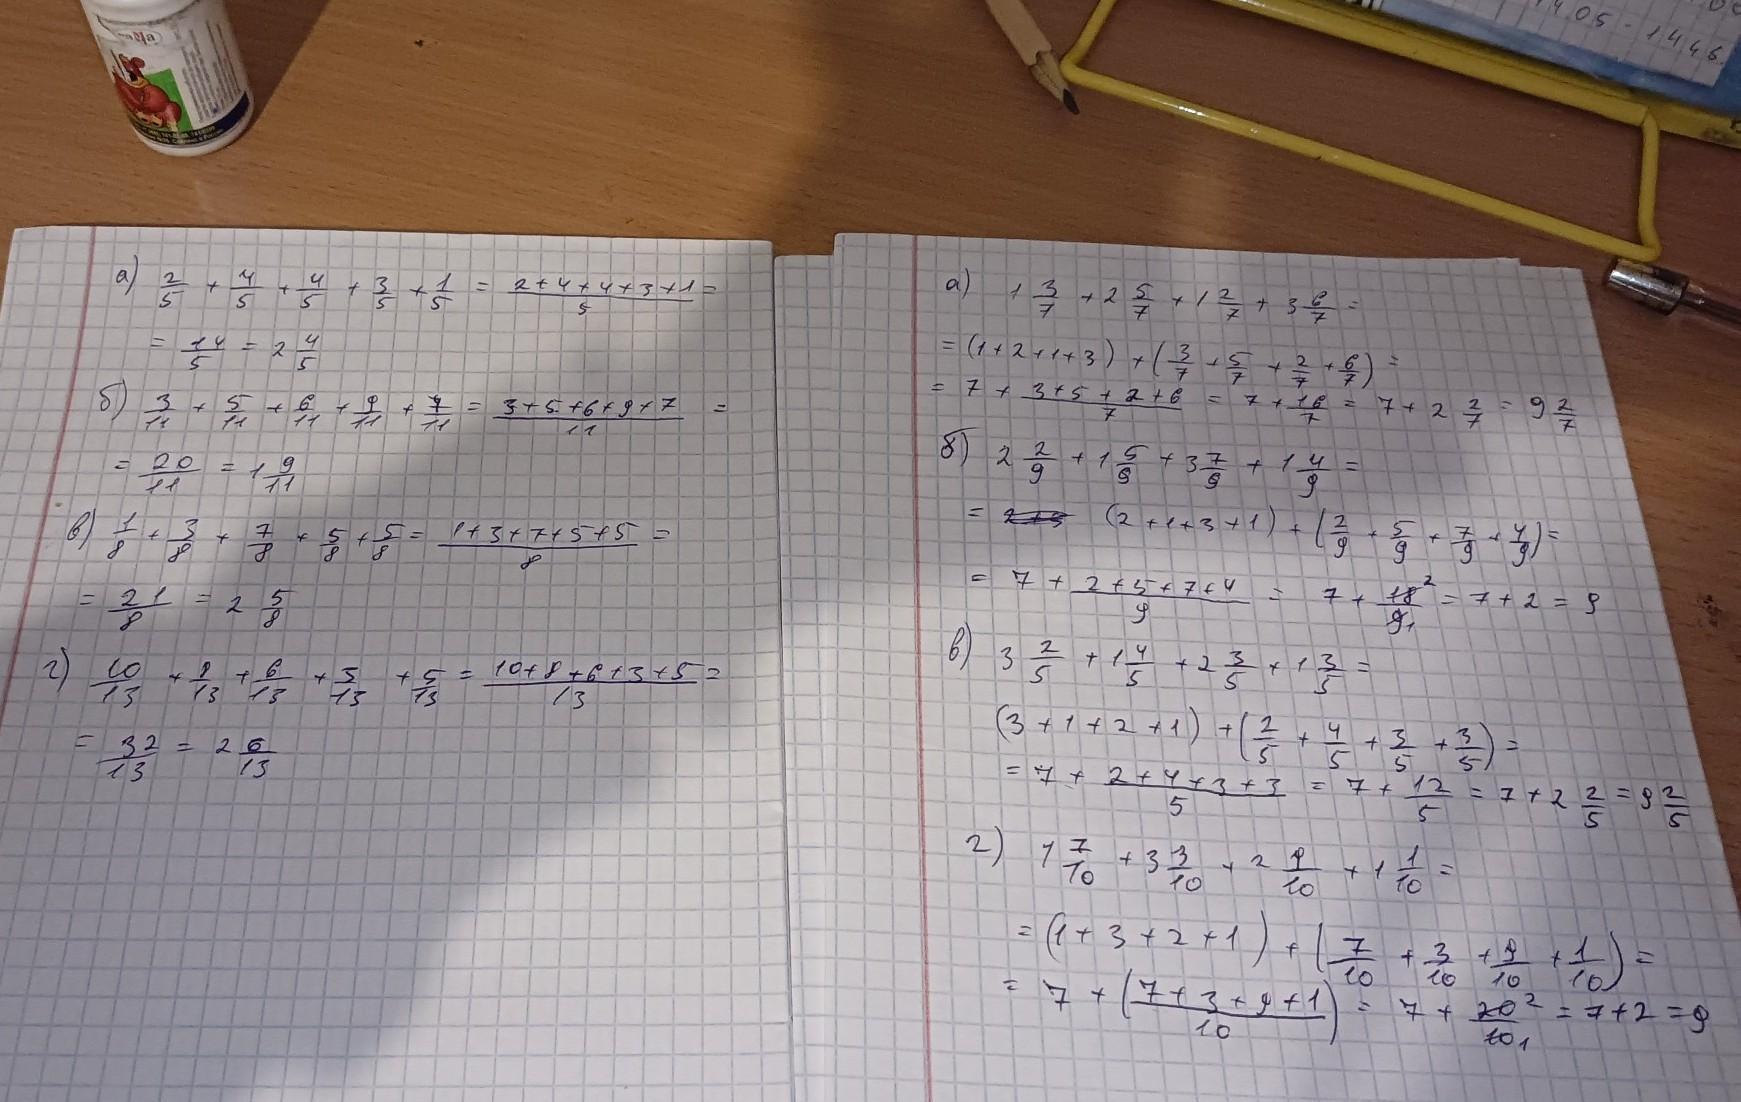 1405-1446.
а) 2/5 + 4/5 + 4/5 + 3/5 + 1/5 = (2+4+4+3+1)/5 =
= 14/5 = 2 4/5
б) 3/11 + 5/11 + 6/11 + 9/11 + 7/11 = (3+5+6+9+7)/11 =
= 20/11 = 1 9/11
в) 1/8 + 3/8 + 7/8 + 5/8 + 5/8 = (1+3+7+5+5)/8 =
= 21/8 = 2 5/8
г) 10/13 + 8/13 + 6/13 + 3/13 + 5/13 = (10+8+6+3+5)/13 =
= 32/13 = 2 6/13
а) 1 3/7 + 2 5/7 + 1 2/7 + 3 6/7 =
= (1+2+1+3) + (3/7 + 5/7 + 2/7 + 6/7) =
= 7 + (3+5+2+6)/7 = 7 + 16/7 = 7 + 2 2/7 = 9 2/7
б) 2 2/9 + 1 5/9 + 3 7/9 + 1 4/9 =
= (2+1+3+1) + (2/9 + 5/9 + 7/9 + 4/9) =
= 7 + (2+5+7+4)/9 = 7 + 18²/9₁ = 7+2 = 9
в) 3 2/5 + 1 4/5 + 2 3/5 + 1 3/5 =
(3+1+2+1) + (2/5 + 4/5 + 3/5 + 3/5) =
= 7 + (2+4+3+3)/5 = 7 + 12/5 = 7 + 2 2/5 = 9 2/5
г) 1 7/10 + 3 3/10 + 2 9/10 + 1 1/10 =
= (1+3+2+1) + (7/10 + 3/10 + 9/10 + 1/10) =
= 7 + ((7+3+9+1)/10) = 7 + 20²/10₁ = 7+2 = 9